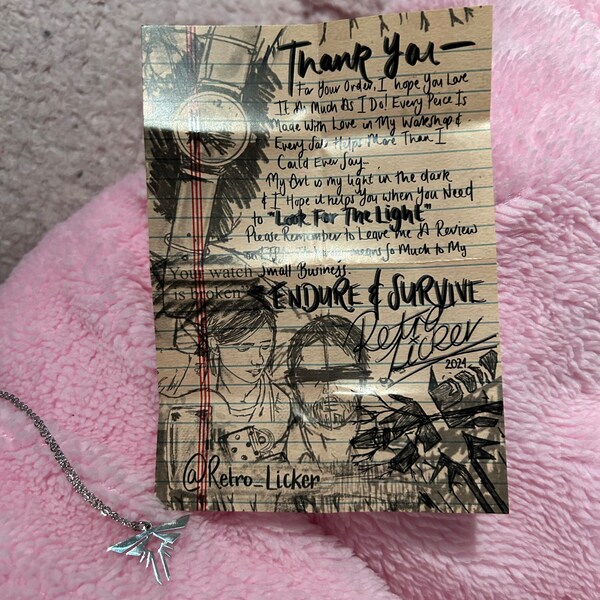 Thank You—
For Your Order, I hope You Love
It As Much As I Do! Every Piece Is
Made With Love in My Workshop &
Every Sale Helps More Than I
Could Ever Say—
My Art is my light in the dark
& I Hope it helps You when You Need
to "Look For The Light"
Please Remember to Leave Me A Review
means So Much to My
Small Business.
Your watch
is broken
ENDURE & SURVIVE
Retro
Licker
2021
@Retro_Licker